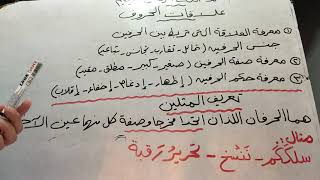 علاقات الحروف
① معرفة العلاقة التى تربط بين الحرفين
جنس الحرفين (تماثل - تقارب - تجانس - تباعد)
② معرفة صفة الحرفين (صغير - كبير - مطلق - مقيد)
③ معرفة حكم الحرفين (إظهار - إدغام - إخفاء - إقلاب)
تعريف المثلين
هما الحرفان اللذان اتحدا مخرجا وصفة كل منهما عين الآخر
مثال:
سلككم - ننسخ - تحرير رقبة